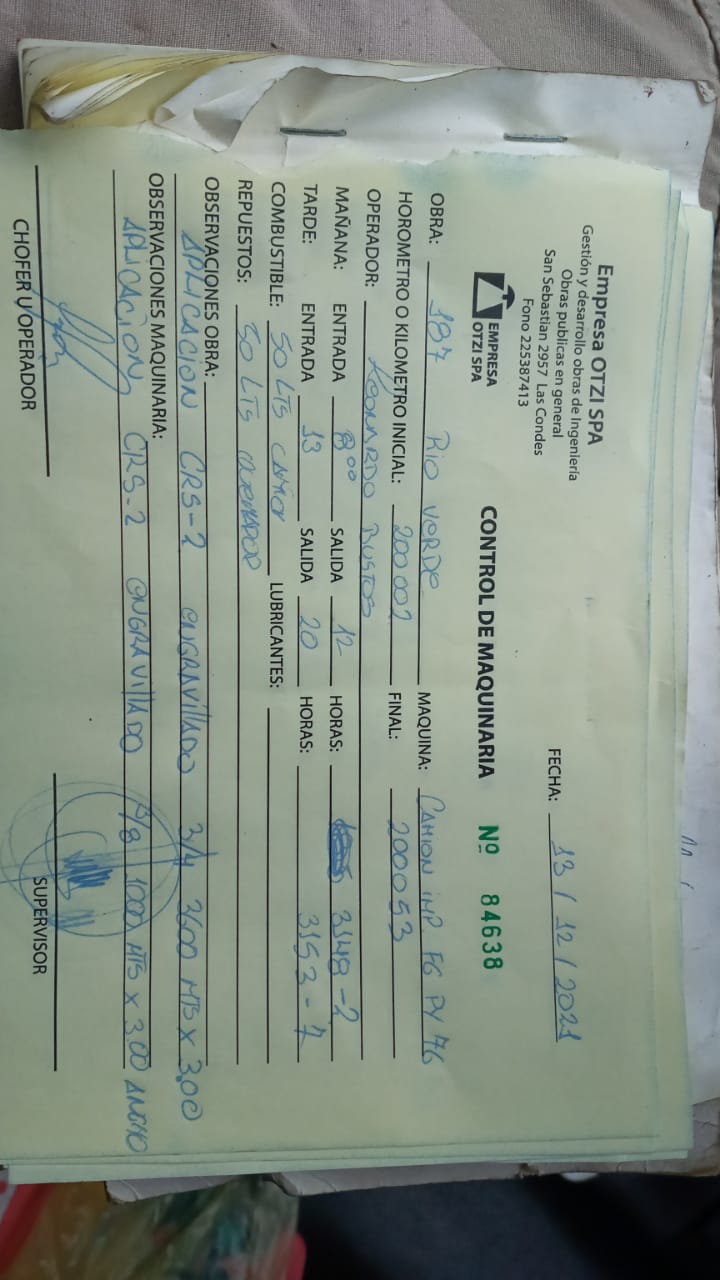 Empresa OTZI SPA
Gestión y desarrollo obras de Ingeniería
Obras publicas en general
San Sebastian 2957 Las Condes
Fono 225387413
EMPRESA
OTZI SPA
FECHA: 13 / 12 / 2021
CONTROL DE MAQUINARIA Nº 84638
OBRA: 187 Rio Verde MAQUINA: CAMION IMP. FG PY 76
HOROMETRO O KILOMETRO INICIAL: 200002 FINAL: 200053
OPERADOR: Leonardo BUSTOS
MAÑANA: ENTRADA 8⁰⁰ SALIDA 12 HORAS: 3148-2
TARDE: ENTRADA 13 SALIDA 20 HORAS: 3153-7
COMBUSTIBLE: 50 LTS CAMION LUBRICANTES:
REPUESTOS: 50 LTS QUEMADOR
OBSERVACIONES OBRA:
APLICACION CRS-2 ENGRAVILLADO 3/4 3600 MTS x 3.00
OBSERVACIONES MAQUINARIA:
APLICACION CRS-2 ENGRAVILLADO /8 1000 MTS x 3.00 ANCHO
CHOFER U OPERADOR
SUPERVISOR